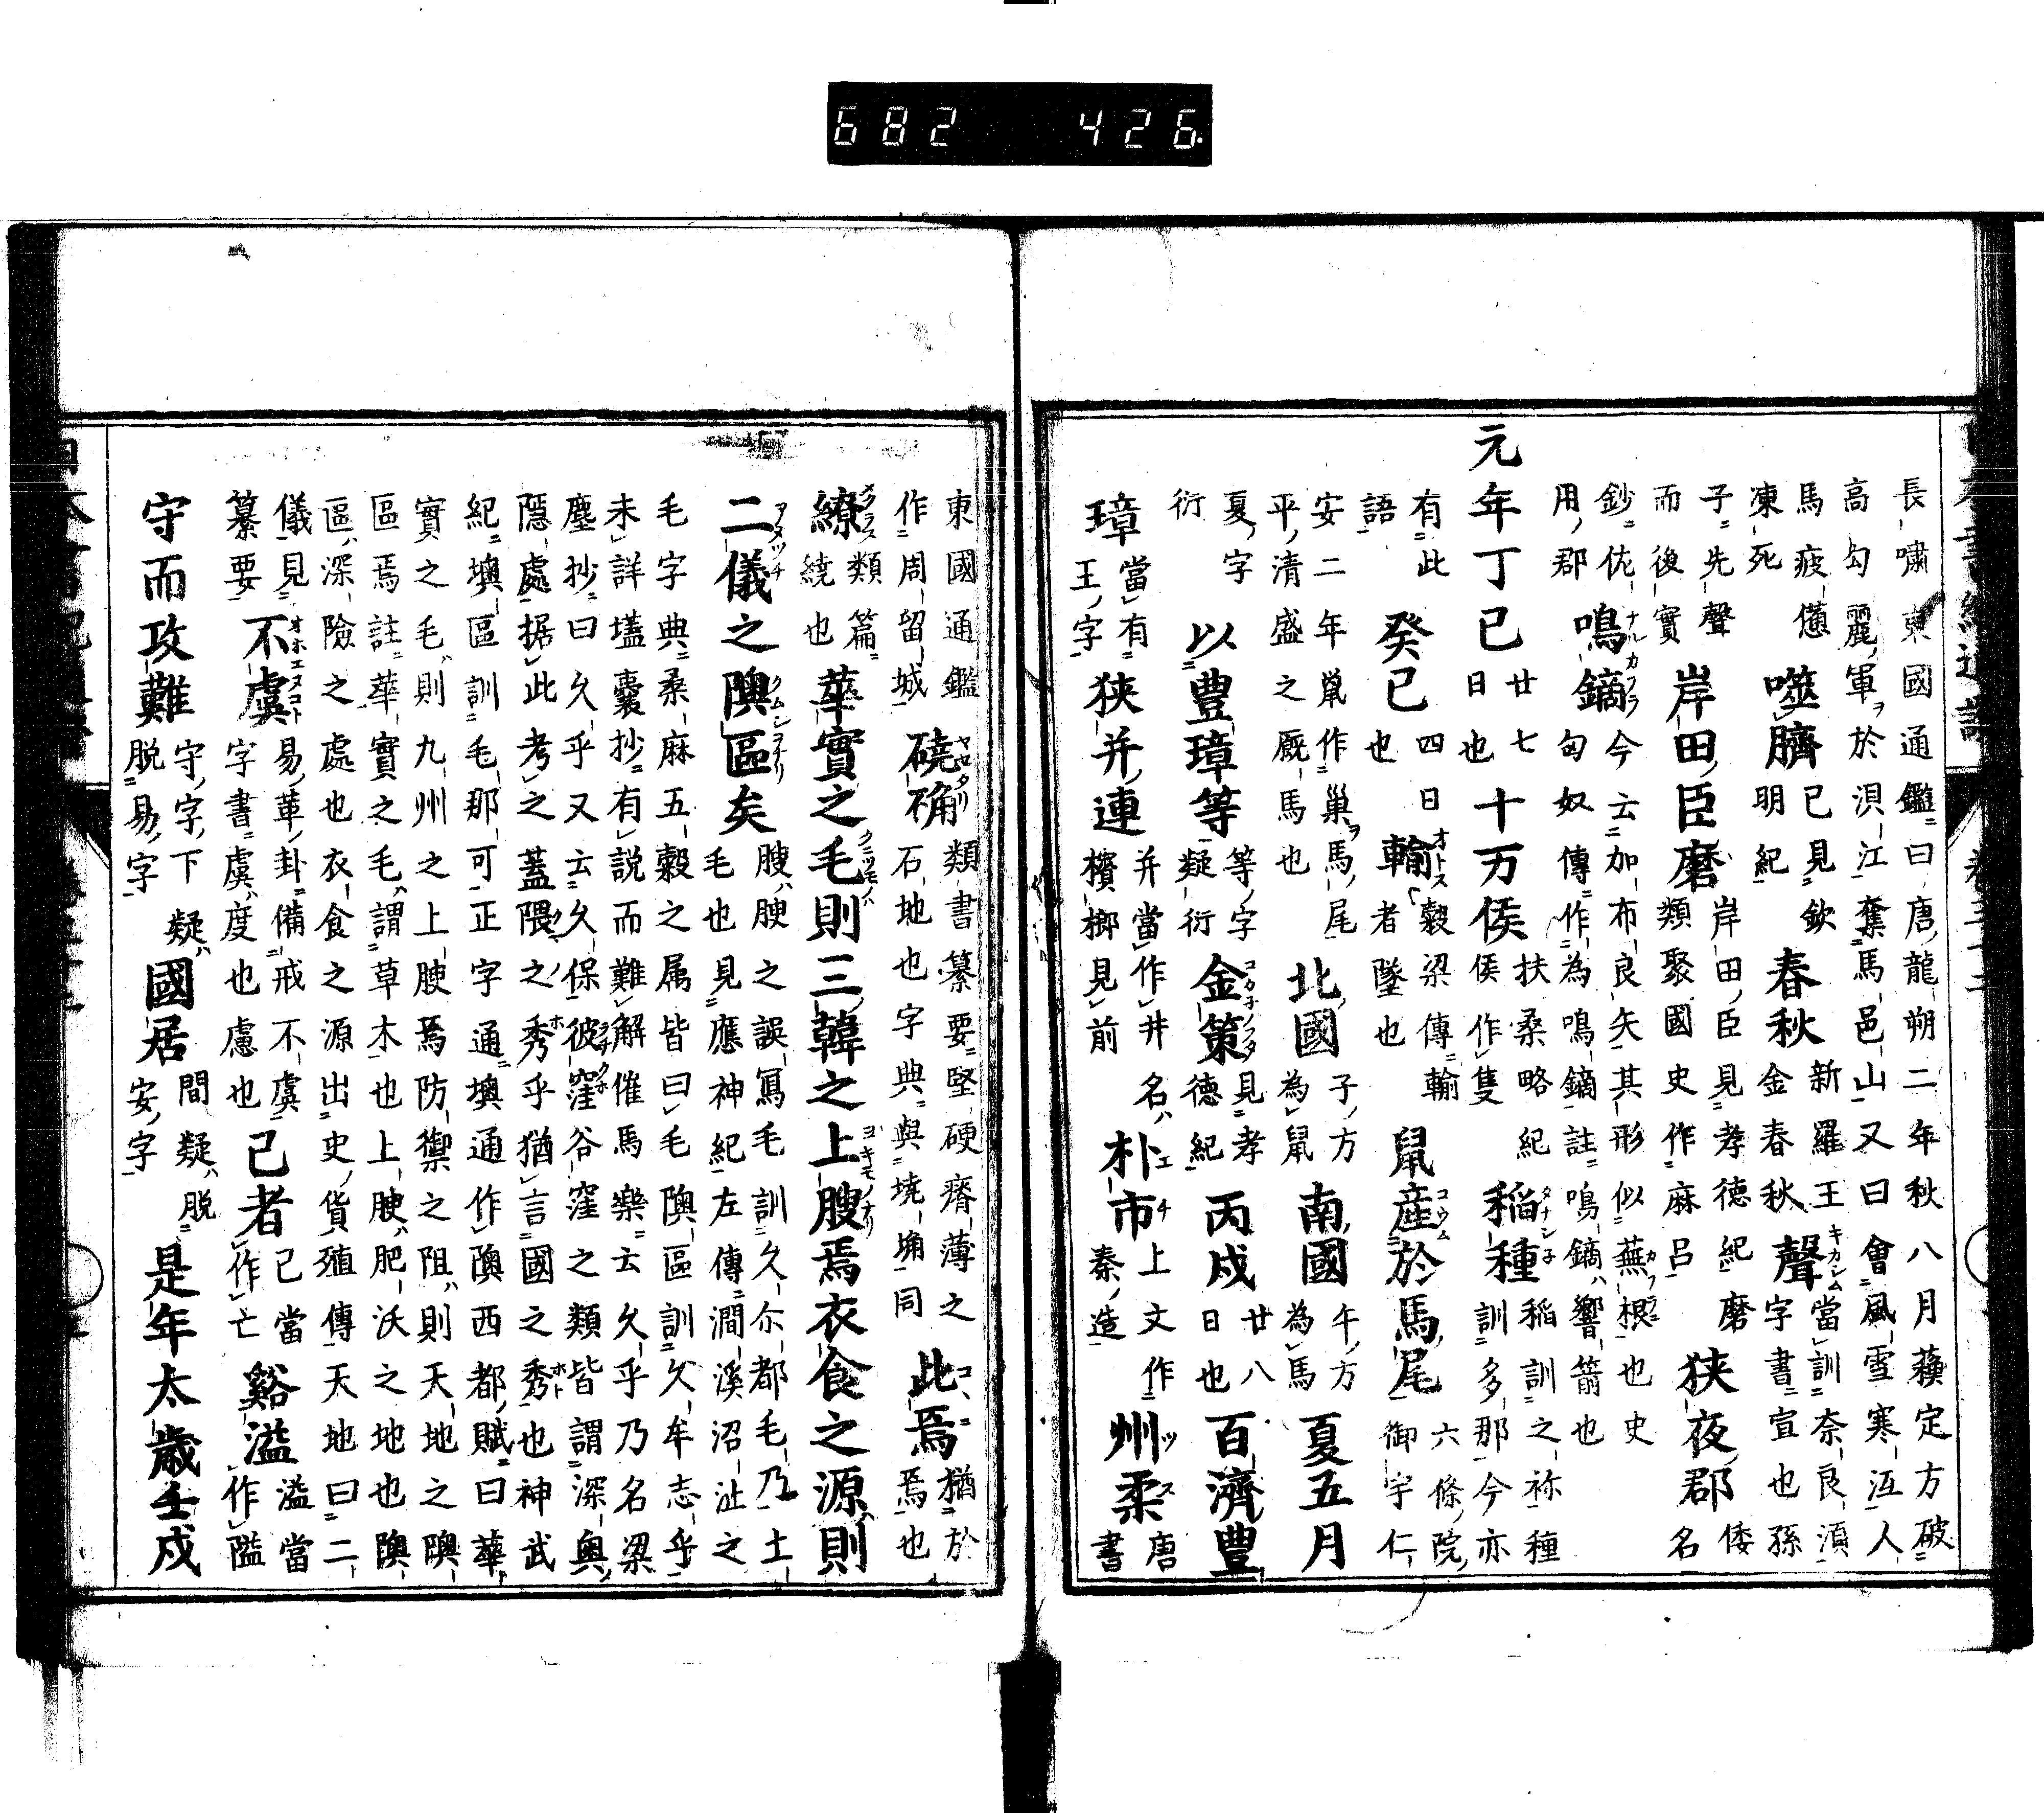 長嘯東國通鑑曰唐龍朔二年秋八月蘓定方破
高勾麗軍ヲ於浿江奪馬邑山又曰會風雪寒沍人
馬疲僅凍死 噬臍 已見欽明紀 春秋 新羅王金春秋 聲キカシム 當訓奈良湏字書宣也孫
子先聲而後實 岸田臣磨 岸田臣見孝德紀磨類聚國史作麻呂 狹夜郡 倭名
鈔佐用郡 鳴鏑ナルカフラ 今云加布良矢其形似蕪根也史匈奴傳作為鳴鏑註鳴鏑響箭也
元年丁已 廿七日也 十万侯 扶桑略紀侯作隻 稻種 稻訓之祢種訓多那今亦
有此語 癸已 四日也 輸オトス 穀梁傳輸者墜也 鼠產コウム於馬尾 六條院御宇仁
安二年鼠作巢ヲ馬尾平清盛之厩馬也 北國 子方為鼠 南國 午方為馬 夏五月
夏字衍 以豊璋等 等字疑衍 金策 見孝德紀 丙戍 廿八日也 百濟豊
璋 當有王字 狹并連 并當作井名檳榔見前 朴市エチ 上文作秦造 州柔ツス 唐書
東國通鑑作周留城 磽确 類書纂要堅硬瘠薄之石地也字典與墝埆同 此焉 猶於焉也
繚 類篇繞也 華實之毛則三韓之上腴焉衣食之源則
二儀之隩區矣 腴腴之誤寫毛訓久尓都毛乃土毛也見應神紀左傳澗溪沼沚之
毛字典桑麻五穀之属皆曰毛隩區訓久牟志乎
未詳壒囊抄有説而難解催馬樂云久乎乃名梁
塵抄曰久乎又云久保彼窪谷窪之類皆謂深奥
隠處据此考之蓋隈之秀乎猶言國之秀也神武
紀墺區訓毛那可正字通墺通作隩西都賦曰華
實之毛則九州之上腴焉防禦之阻則天地之隩
區焉註華實之毛謂草木也上腴肥沃之地也隩
區深險之處也衣食之源出史貨殖傳天地曰二
儀見纂要 不虞 易萃卦備戒不虞字書虞度也慮也 己者 己當作亡 谿溢 溢當作隘
守而攻難 守字下疑脱易字 國居 間疑脱安字 是年太歲壬戍
682 426